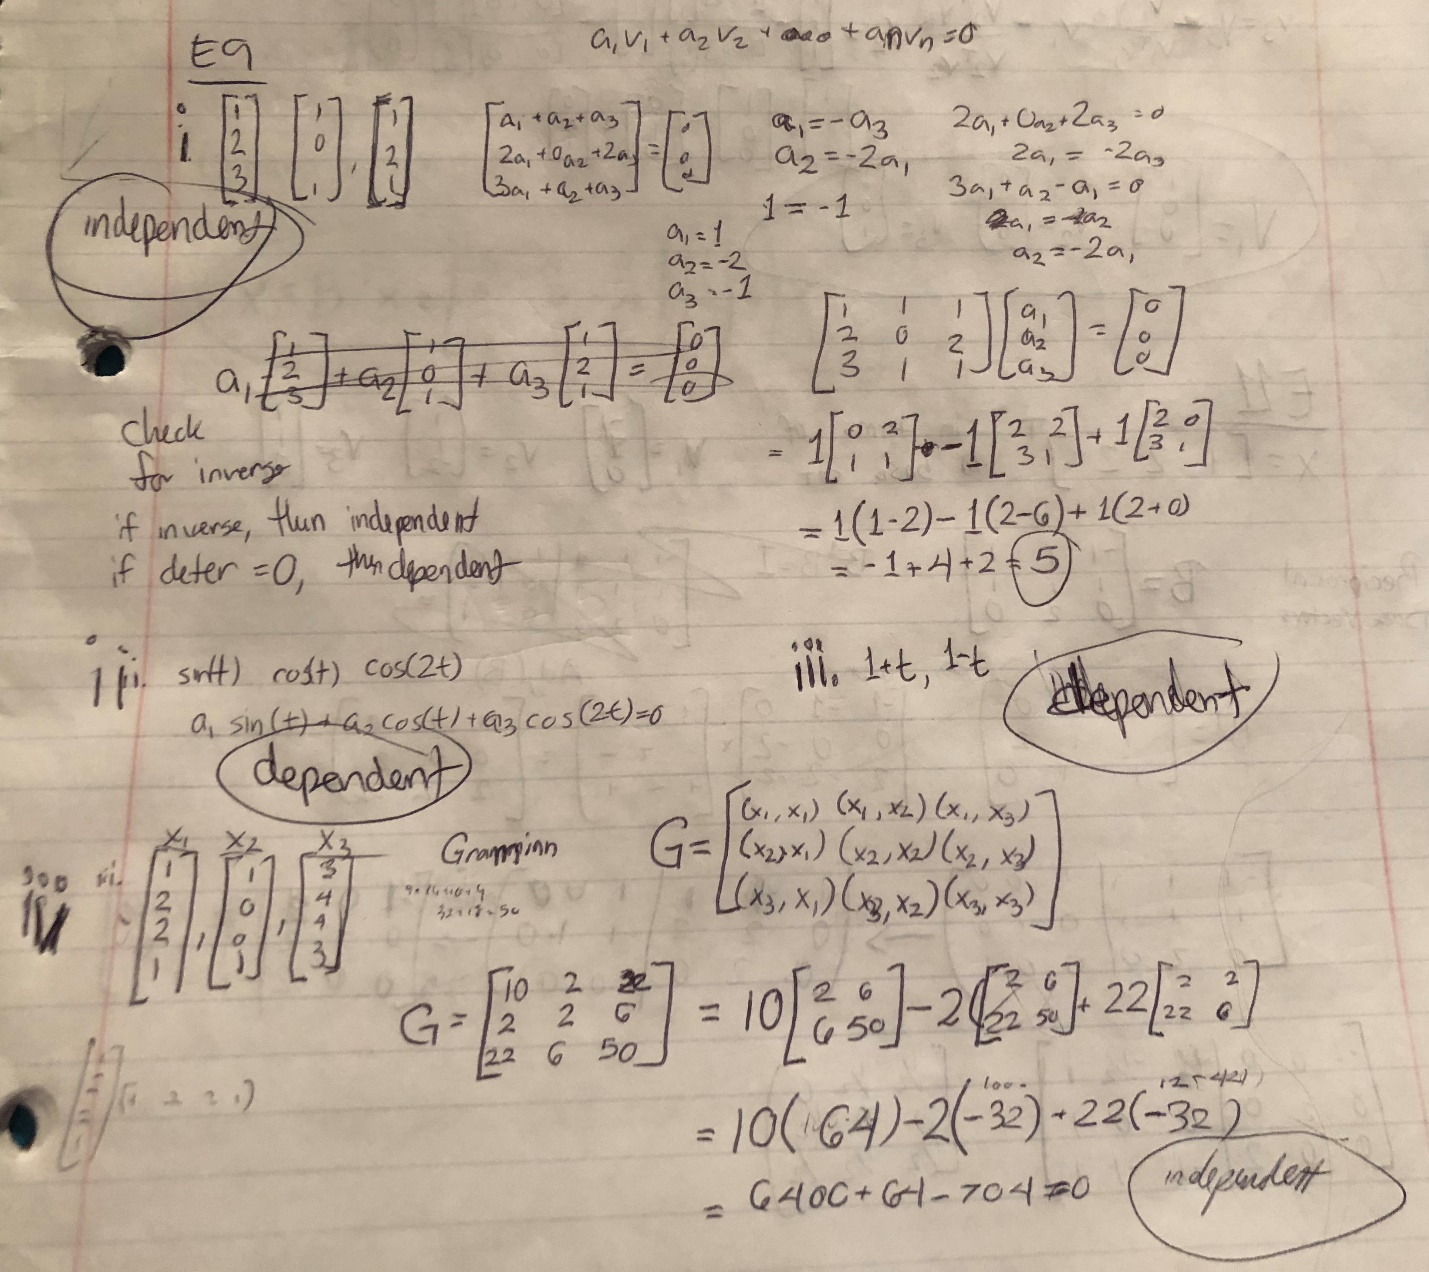 a₁v₁ + a₂v₂ + ... + aₙvₙ = 0
E9
i. [1 2 3] [1 0 1], [1 2 1]
[a₁ + a₂ + a₃
2a₁ + 0a₂ + 2a₃
3a₁ + a₂ + a₃] = [0 0 0]
a₁ = -a₃
a₂ = -2a₁
1 = -1
2a₁ + 0a₂ + 2a₃ = 0
2a₁ = -2a₃
3a₁ + a₂ - a₁ = 0
2a₁ = -a₂
a₂ = -2a₁
independent
a₁ = 1
a₂ = -2
a₃ = -1
a₁ [1 2 3] + a₂ [1 0 1] + a₃ [1 2 1] = [0 0 0]
[1 1 1
2 0 2
3 1 1] [a₁ a₂ a₃] = [0 0 0]
= 1 [0 2 1 1] - 1 [2 2 3 1] + 1 [2 0 3 1]
= 1(1-2) - 1(2-6) + 1(2+0)
= -1 + 4 + 2 = 5
Check
for inverse
if inverse, then independent
if deter = 0, then dependent
ii. sin(t) cos(t) cos(2t)
a₁ sin(t) + a₂ cos(t) + a₃ cos(2t) = 0
dependent
iii. 1+t, 1-t
dependent
iv x₁ x₂ x₃
[1 2 2 1], [1 0 0 1], [3 4 4 3]
Grammian
G = [(x₁, x₁) (x₁, x₂) (x₁, x₃)
(x₂, x₁) (x₂, x₂) (x₂, x₃)
(x₃, x₁) (x₃, x₂) (x₃, x₃)]
G = [10 2 22
2 2 6
22 6 50] = 10 [2 6 6 50] - 2 [2 6 22 50] + 22 [2 2 22 6]
= 10(64) - 2(-32) + 22(-32)
= 6400 + 64 - 704 ≠ 0
independent